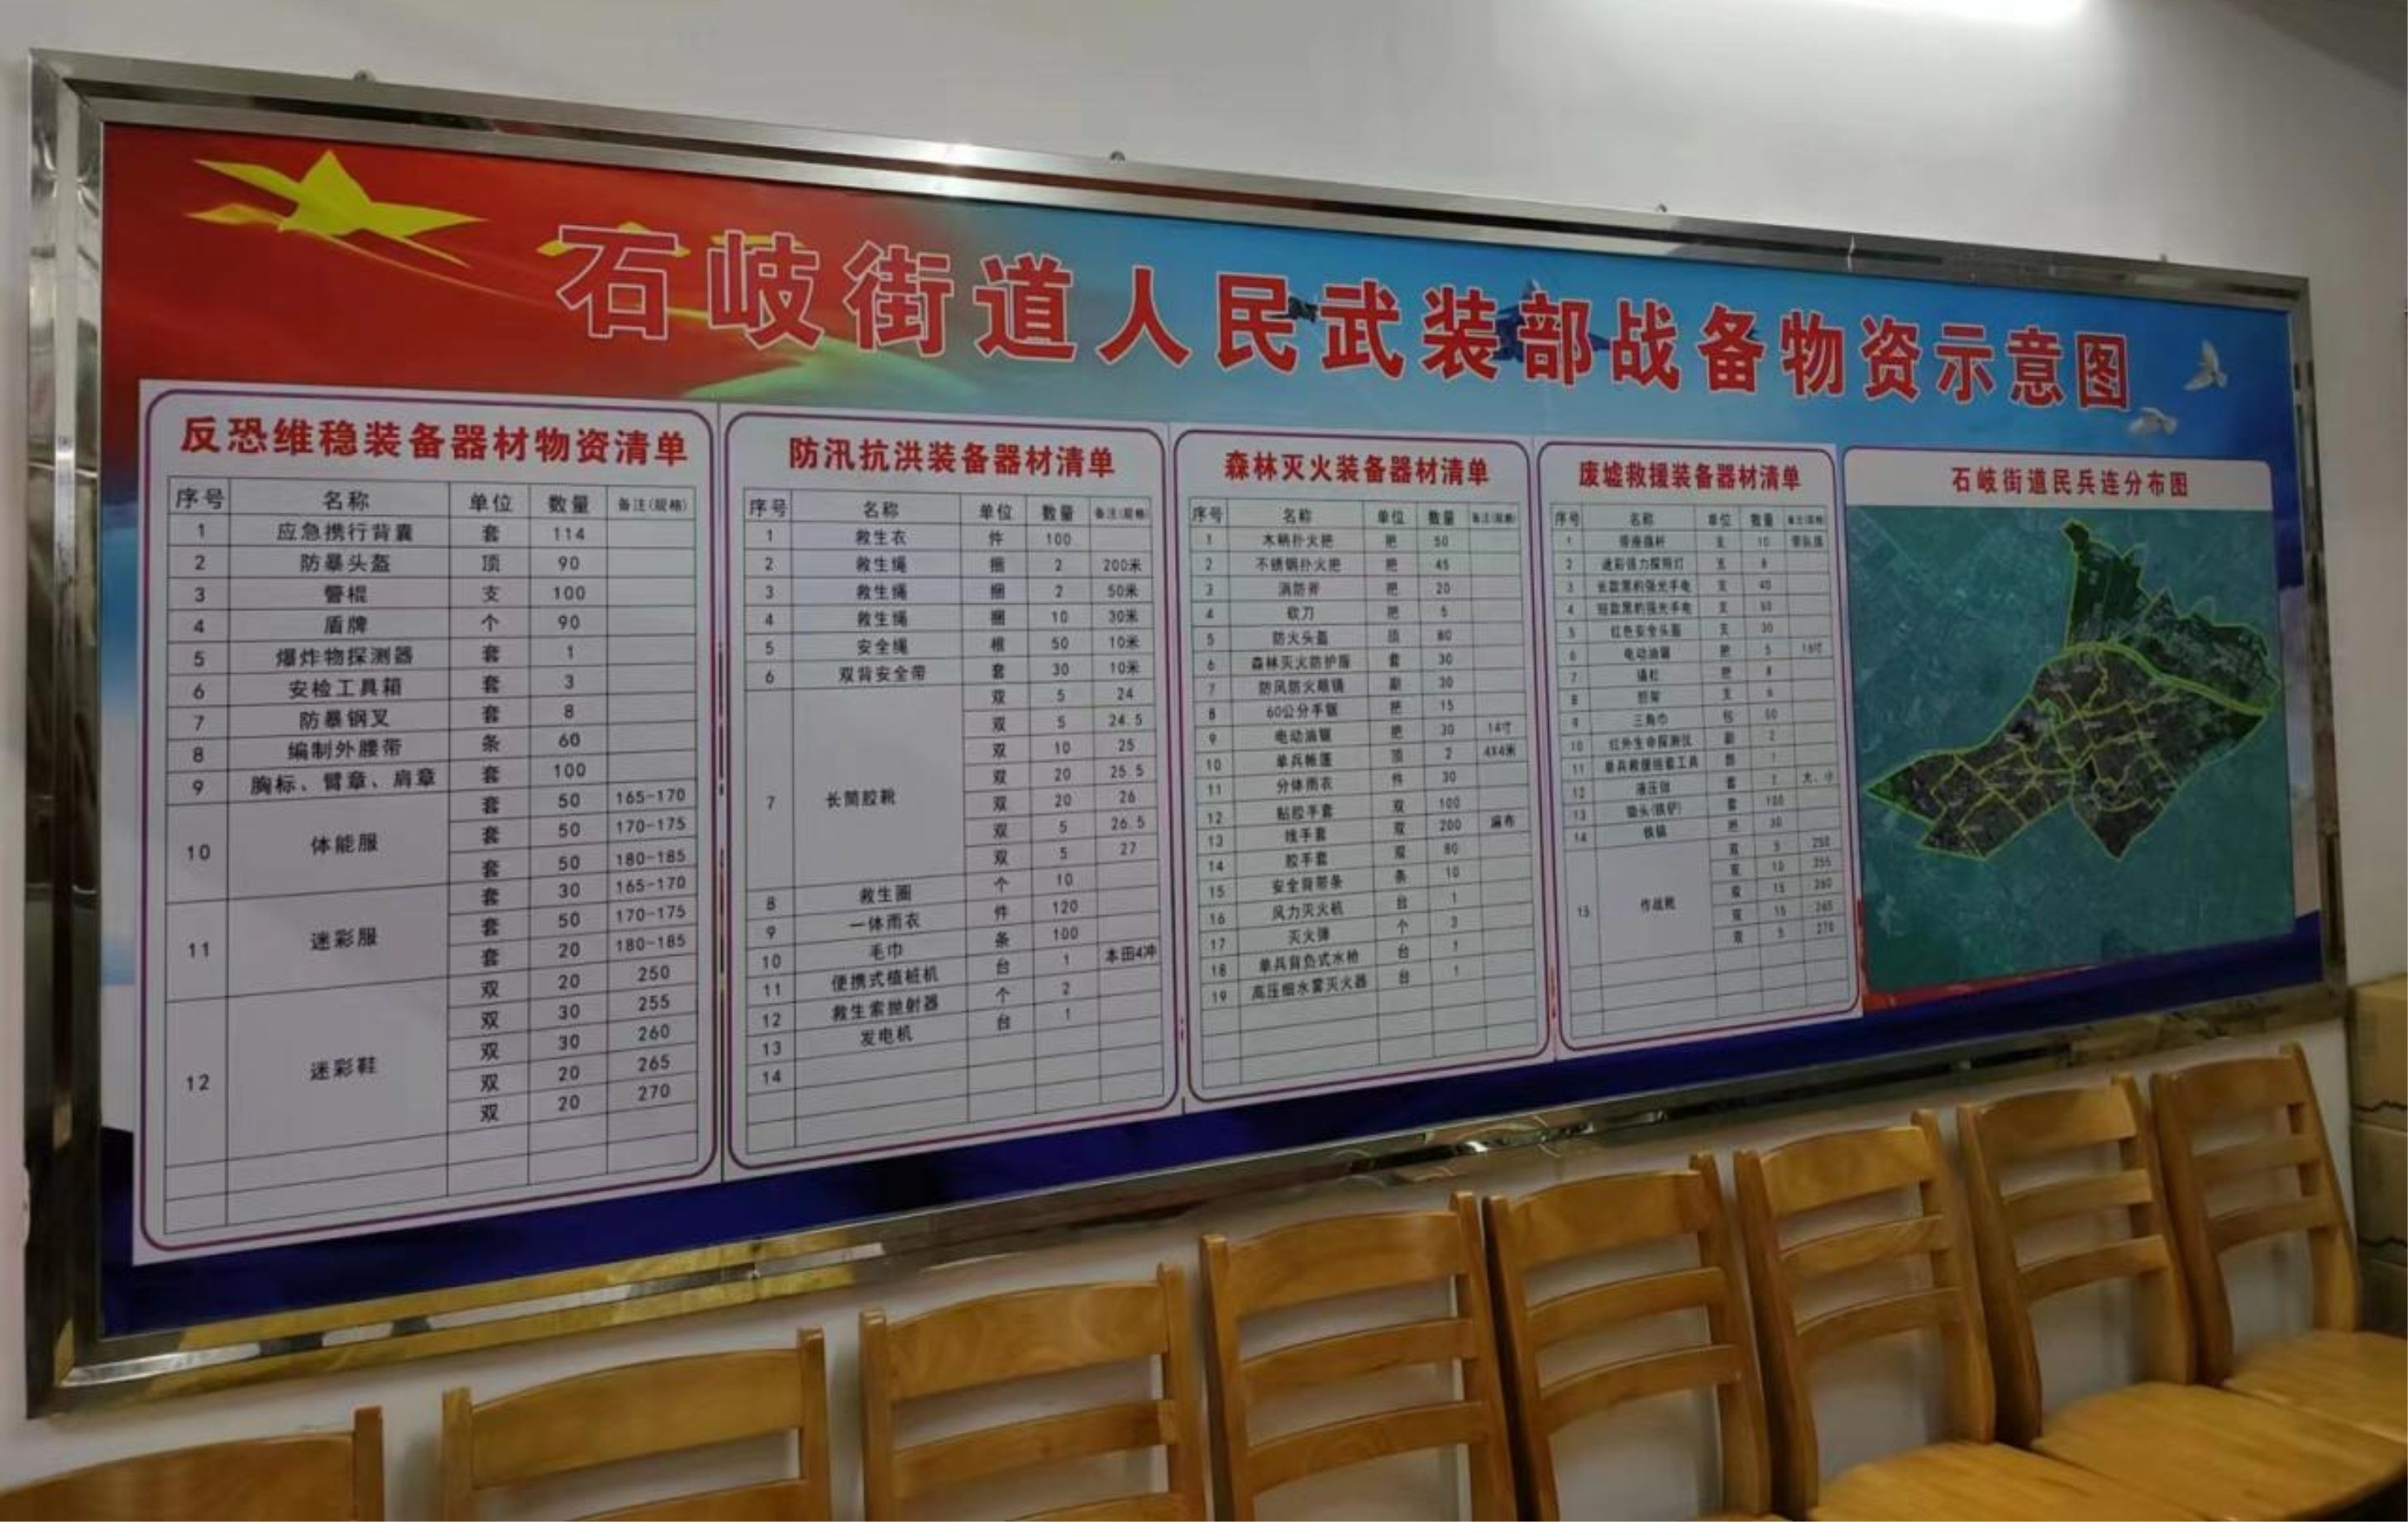 石岐街道人民武装部战备物资示意图
反恐维稳装备器材物资清单
序号 名称 单位 数量 备注(规格)
1 应急携行背囊 套 114
2 防暴头盔 顶 90
3 警棍 支 100
4 盾牌 个 90
5 爆炸物探测器 套 1
6 安检工具箱 套 3
7 防暴钢叉 套 8
8 编制外腰带 条 60
9 胸标、臂章、肩章 套 100
10 体能服 套 50 165-170
套 50 170-175
套 50 180-185
11 迷彩服 套 30 165-170
套 50 170-175
套 20 180-185
12 迷彩鞋 双 20 250
双 30 255
双 30 260
双 20 265
双 20 270
防汛抗洪装备器材清单
序号 名称 单位 数量 备注(规格)
1 救生衣 件 100
2 救生绳 捆 2 200米
3 救生绳 捆 2 50米
4 救生绳 捆 10 30米
5 安全绳 根 50 10米
6 双背安全带 套 30 10米
7 长筒胶靴 双 5 24
双 5 24.5
双 10 25
双 20 25.5
双 20 26
双 5 26.5
双 5 27
8 救生圈 个 10
9 一体雨衣 件 120
10 毛巾 条 100
11 便携式植桩机 台 1 本田4冲
12 救生索抛射器 个 2
13 发电机 台 1
14
森林灭火装备器材清单
序号 名称 单位 数量 备注(规格)
1 木柄扑火把 把 50
2 不锈钢扑火把 把 45
3 消防斧 把 20
4 砍刀 把 5
5 防火头盔 顶 80
6 森林灭火防护服 套 30
7 防风防火眼镜 副 30
8 60公分手锯 把 15
9 电动油锯 把 30 14寸
10 单兵帐篷 顶 2 4X4米
11 分体雨衣 件 30
12 粘胶手套 双 100
13 线手套 双 200 麻布
14 胶手套 双 80
15 安全背带条 条 10
16 风力灭火机 台 1
17 灭火弹 个 3
18 单兵背负式水枪 台 1
19 高压细水雾灭火器 台 1
废墟救援装备器材清单
序号 名称 单位 数量 备注(规格)
1 支 10
2 迷彩强力探照灯 支 8
3 长款黑豹强光手电 支 40
4 短款黑豹强光手电 支
5 红色安全头盔 支 30
6 电动油锯 把 5 16寸
7 把 8
8 担架 支 6
9 三角巾 包 50
10 红外生命探测仪 副 2
11 单兵救援组套工具
12 液压钳 套 2 大、小
13 锄头(铁铲) 套 100
14 铁镐 把 30
15 作战靴 双 5 250
双 10 255
双 15 260
双 15 265
双 5 270
石岐街道民兵连分布图